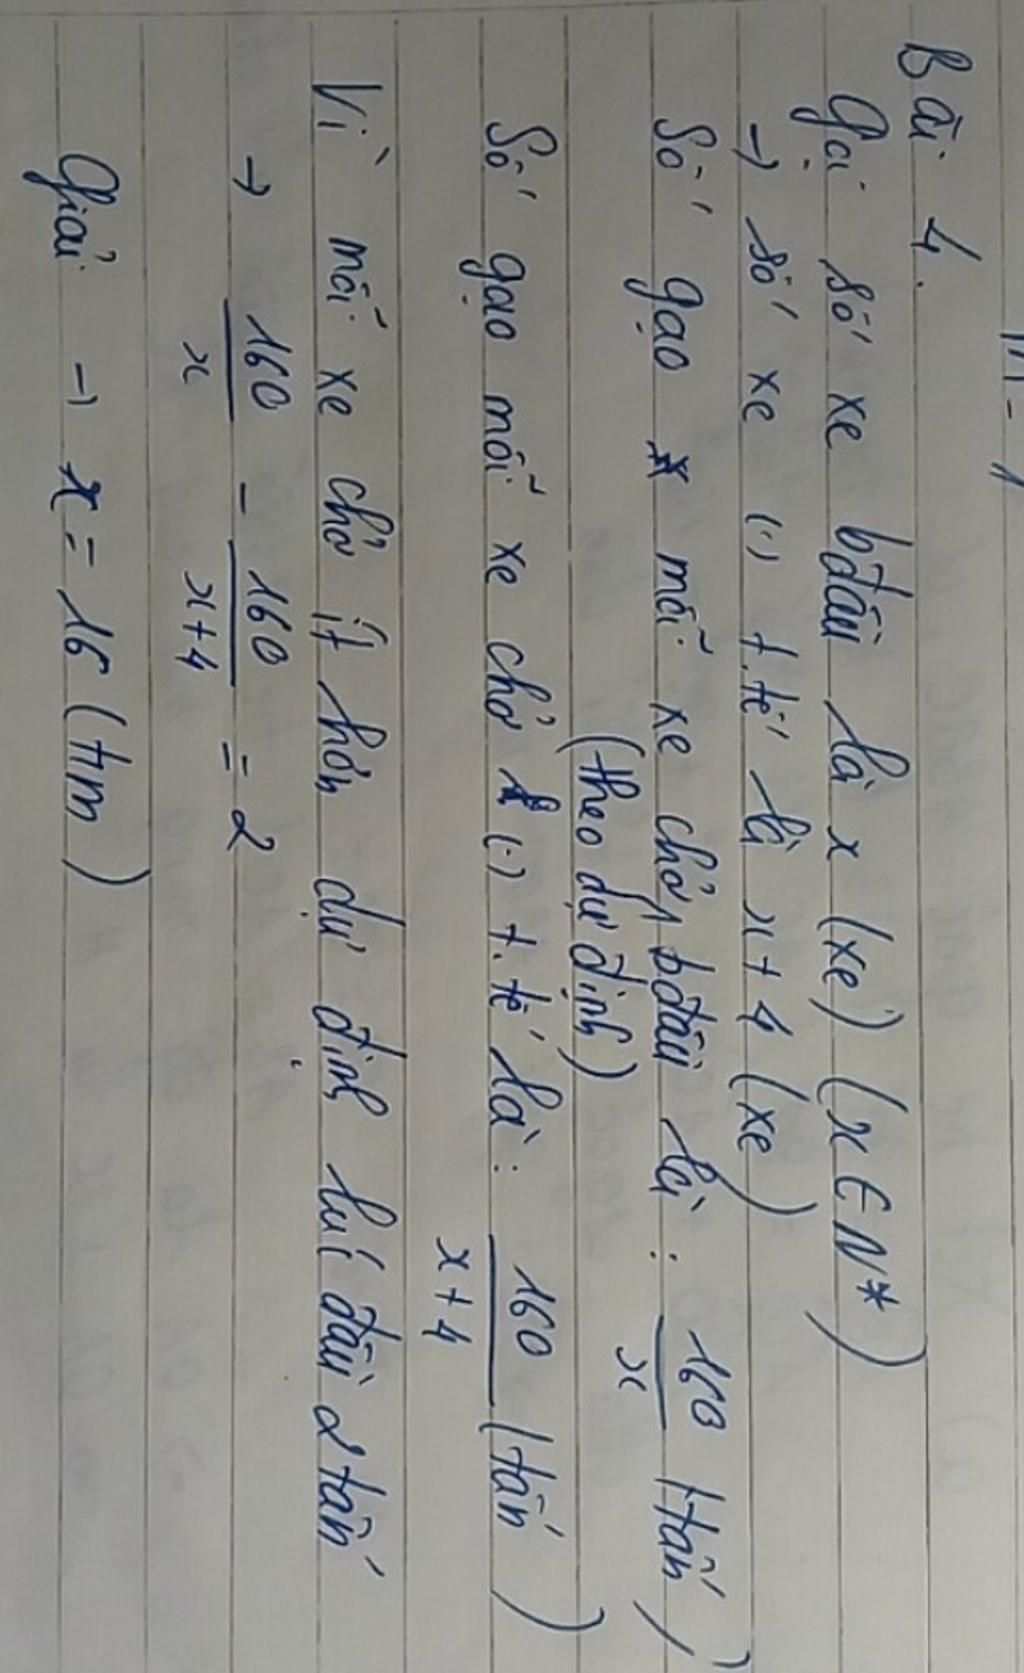 m - 1
Bài 4.
Gọi số xe bđầu là x (xe) (x ∈ N*)
→ số xe (·) t.tế là x + 4 (xe)
Số gạo mỗi xe chở bđầu là : 160/x (tấn)
(theo dự định)
Số gạo mỗi xe chở (·) t.tế là : 160/x+4 (tấn)
Vì mỗi xe chở ít hơn dự định lúc đầu 2 tấn
→ 160/x - 160/x+4 = 2
Giải → x = 16 (tm)